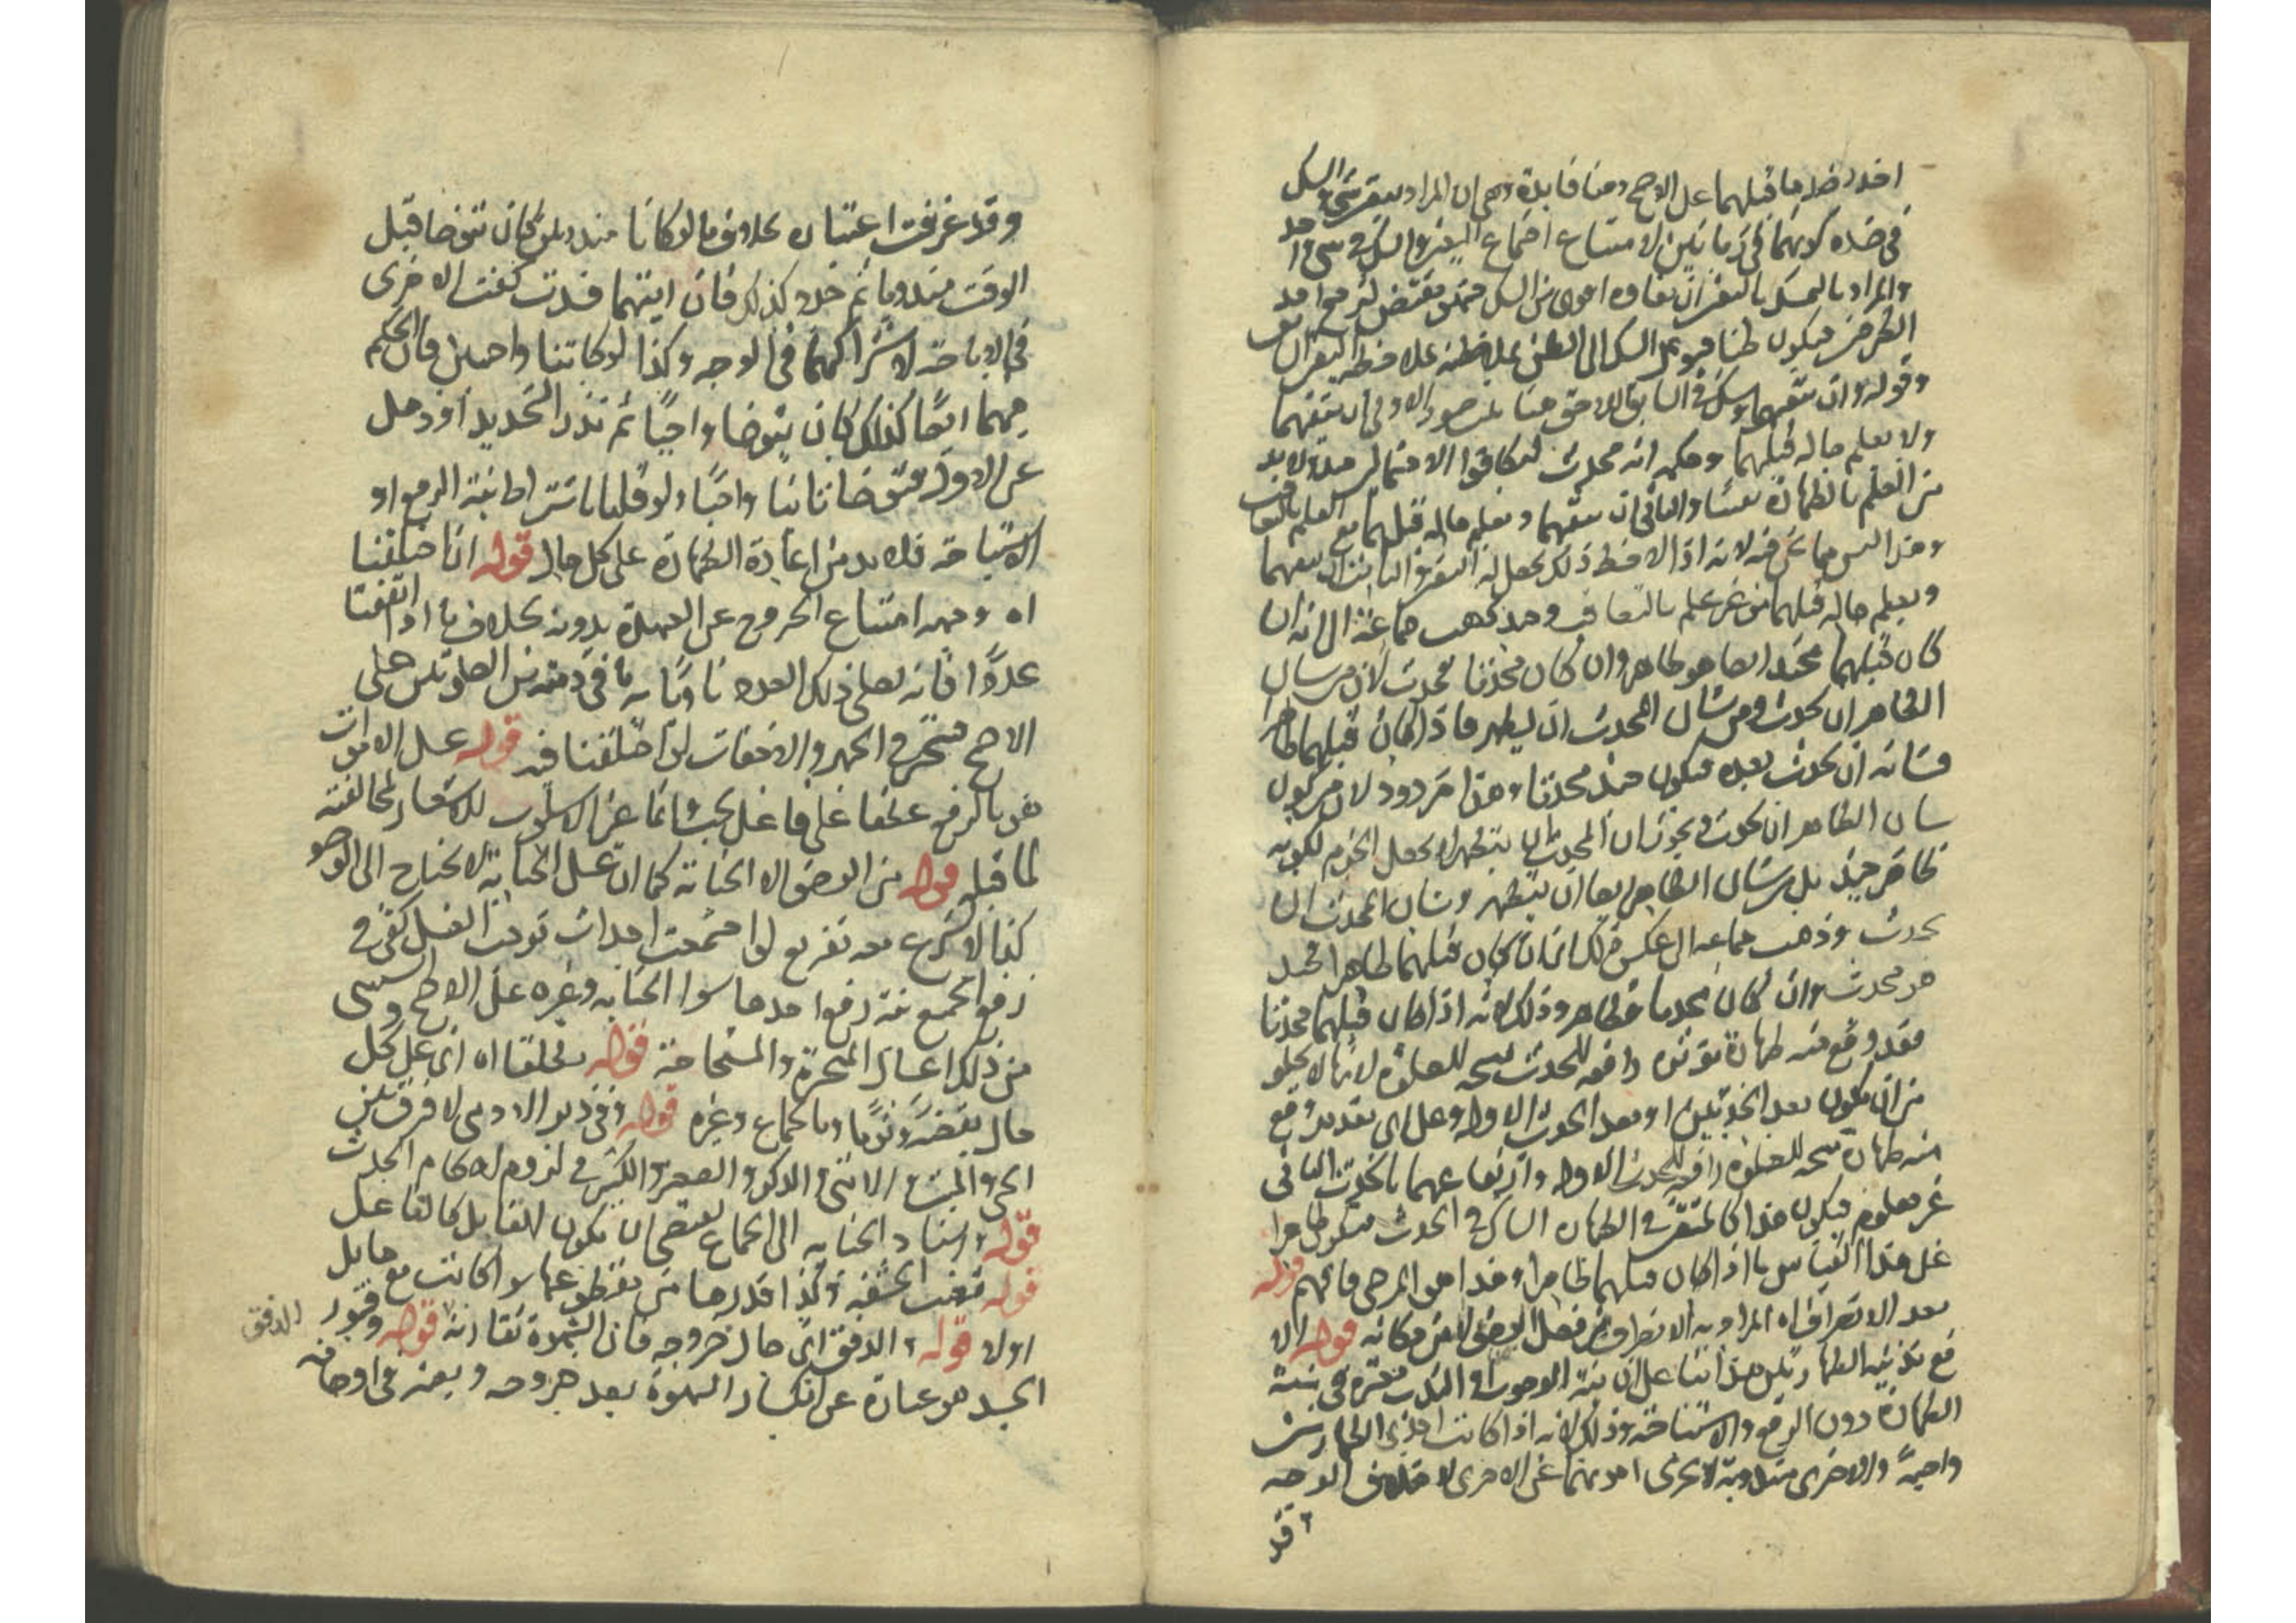 اخذ بضد ما قبلهما على الاصح وهنا فايدة وهى ان المراد بتيقن شى والشك
فى ضده كونهما فى زمانين لامتناع اجتماع اليقين والشك فى شى احد
والمراد بالتمسك باليقين ان بقاوه اقوى من الشك فهو يقتضى ترجيح احد
الطرفين فيكون ظنا
وقوله وان تيقنهما وشك فى السابق اللاحق هنا صور الاولى ان يتيقنهما
ولا يعلم حاله قبلهما وحكمه انه محدث لتكافؤ الاحتمالين
من العلم بالطهارة والثانى ان يتيقنهما ويعلم حاله قبلهما مع العلم بالتعاقب
وهذا ليس مما نحن فيه لانه اذا لاحظ ذلك يحصل له اليقين الثالث ان يتيقنهما
ويعلم حاله قبلهما من غير علم بالتعاقب وقد ذهب جماعة الى انه ان
كان قبلهما متطهرا فهو طاهر وان كان محدثا فمحدث لان من شان
الطاهر ان يحدث ومن شان المحدث ان يتطهر فاذا كان قبلهما طاهرا
فشانه ان يحدث بعده فيكون محدثا وهذا مردود لان من كون
شان الطاهر ان يحدث ويجوز ان المحدث ان يتطهر لا يحصل الجزم لكونه
طاهر حينئذ بل من شان الطاهر ايضا ان يتطهر وشان المحدث ان
يحدث وذهب جماعة الى عكس ذلك اى ان كان قبلهما طاهرا
فهو محدث وان كان محدثا فطاهر وذلك لانه اذا كان قبلهما محدثا
فقد وقع منه طهارة رافعة للحدث مبيحة للصلوة لانها لا يخلو
من ان يكون بعد الحدثين او بعد الحدث الاول وعلى اى تقدير وقع
منه طهارة مبيحة للصلوة رافعة للحدث الاول وارتفاعهما بالحدث الثانى
غير معلوم فيكون هذا كالمتيقن فى الطهارة الشاك فى الحدث فيكون طاهرا
على هذا القياس ما اذا كان قبلهما طاهرا وهذا هو المرضى فافهم قوله
بعد الانصراف اه المراد به الانصراف من فعل الوضوء لا من مكانه قوله الا
مع نية الطهارتين هذا بنا على ان نية الوجوب او الندب معتبرة فى نية
الطهارة دون الرفع والاستباحة وذلك لانه اذا كانت احدى الطهارتين
واجبة والاخرى مندوبة لا تجزى احدهما عن الاخرى لاختلاف الوجه
وقد
وقد عرفت اعتباره بخلاف ما لو كانا مندوبين كان توضا قبل
الوقت مندوبا ثم جدد كذلك فان ايتهما فسدت كفت الاخرى
فى الاباحة لاشتراكهما فى الوجه وكذا لو كانتا واجبتين فان الحكم
فيهما ايضا كذلك كان يتوضا واجبا ثم نذر التجديد او ذهل
عن الاول فتوضا ثانيا واجبا ولو قلنا باشتراط نية الرفع او
الاستباحة فلا بد من اعادة الطهارة على كل حال قوله ان اختلفتا
اه وجهه امتناع الخروج عن العهدة بدونه بخلاف ما اذا اتفقتا
عددا فانه يصلى ذلك العدد ناويا به ما فى ذمته من الصلوتين على
الاصح فيتخير فى الجهر والاخفات لو اختلفتا فيه قوله غسل الاموات
هو بالرفع عطفا على فاعل يجب وانما غير الاسلوب للاشعار لمخالفته
لما قبله قوله من الوضوء الا الجنابة كما ان غسل الجنابة لا يحتاج الى الوضو
كذا لا يشرع معه تفريع لو اجتمعت احداث توجب الغسل كفى فى
رفع الجميع نية رفع احدها سوا الجنابة وغيره على الاصح ويستثنى
من ذلك اغسال المتحيرة والمستحاضة قوله مطلقا اه اى على كل
حال يقظة ونوما وبالجماع وغيره قوله وفى دبر الادمى لا فرق بين
الحى والميت الانثى والذكر والصغير والكبير فى لزوم احكام الحدث
قوله واسناد الجنابة الى الجماع يقتضى ان يكون القابل كالفاعل
قوله تغيب الحشفة وكذا قدرها من مقطوعها سوا كانت مع حايل
او لا قوله والدفق اى حال خروجه فان الشهوة تقارنه قوله وفتور
الجسد هو عبارة عن انكسار الشهوة بعد خروجه ويعتبر فى اوصافه
الدفق